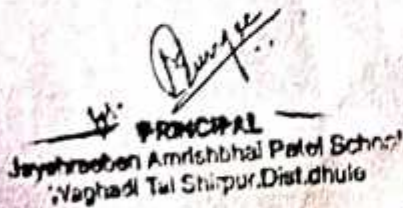 PRINCIPAL
Jayshreeben Amrishbhai Patel School
Vaghadi Tal Shirpur.Dist.dhule